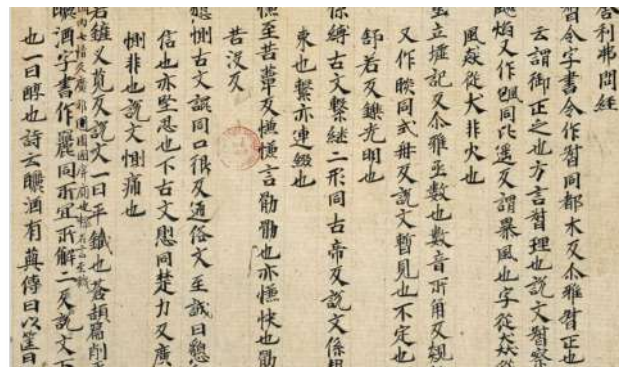 舍利弗問經
督令字書今作督同都木反尒雅督正也
云謂御正之也方言督理也說文督察
飈焰又作飆同比遥反謂暴風也字從猋從
風焱從犬非火也
亟立墟記反尒雅亟數也數音所角反
又作睒同式冉反說文暫見也不定也
舒若反鑠光明也
係縛古文繫継二形同古帝反說文係
束也繫亦連綴也
至苦葦反慬慬言勸勸也亦慬快也
苦沒反
懇惻古文誤同口很反通俗文至誠曰懇
信也亦堅忍也下古文同楚力反廣
惻非也說文惻痛也
若鏟又莧反說文一曰平鐵也蒼頡篇削平
曬酒字書作麗同所宜所解二反說文下
也一曰醇也詩云曬酒有藇傳曰以筐曰